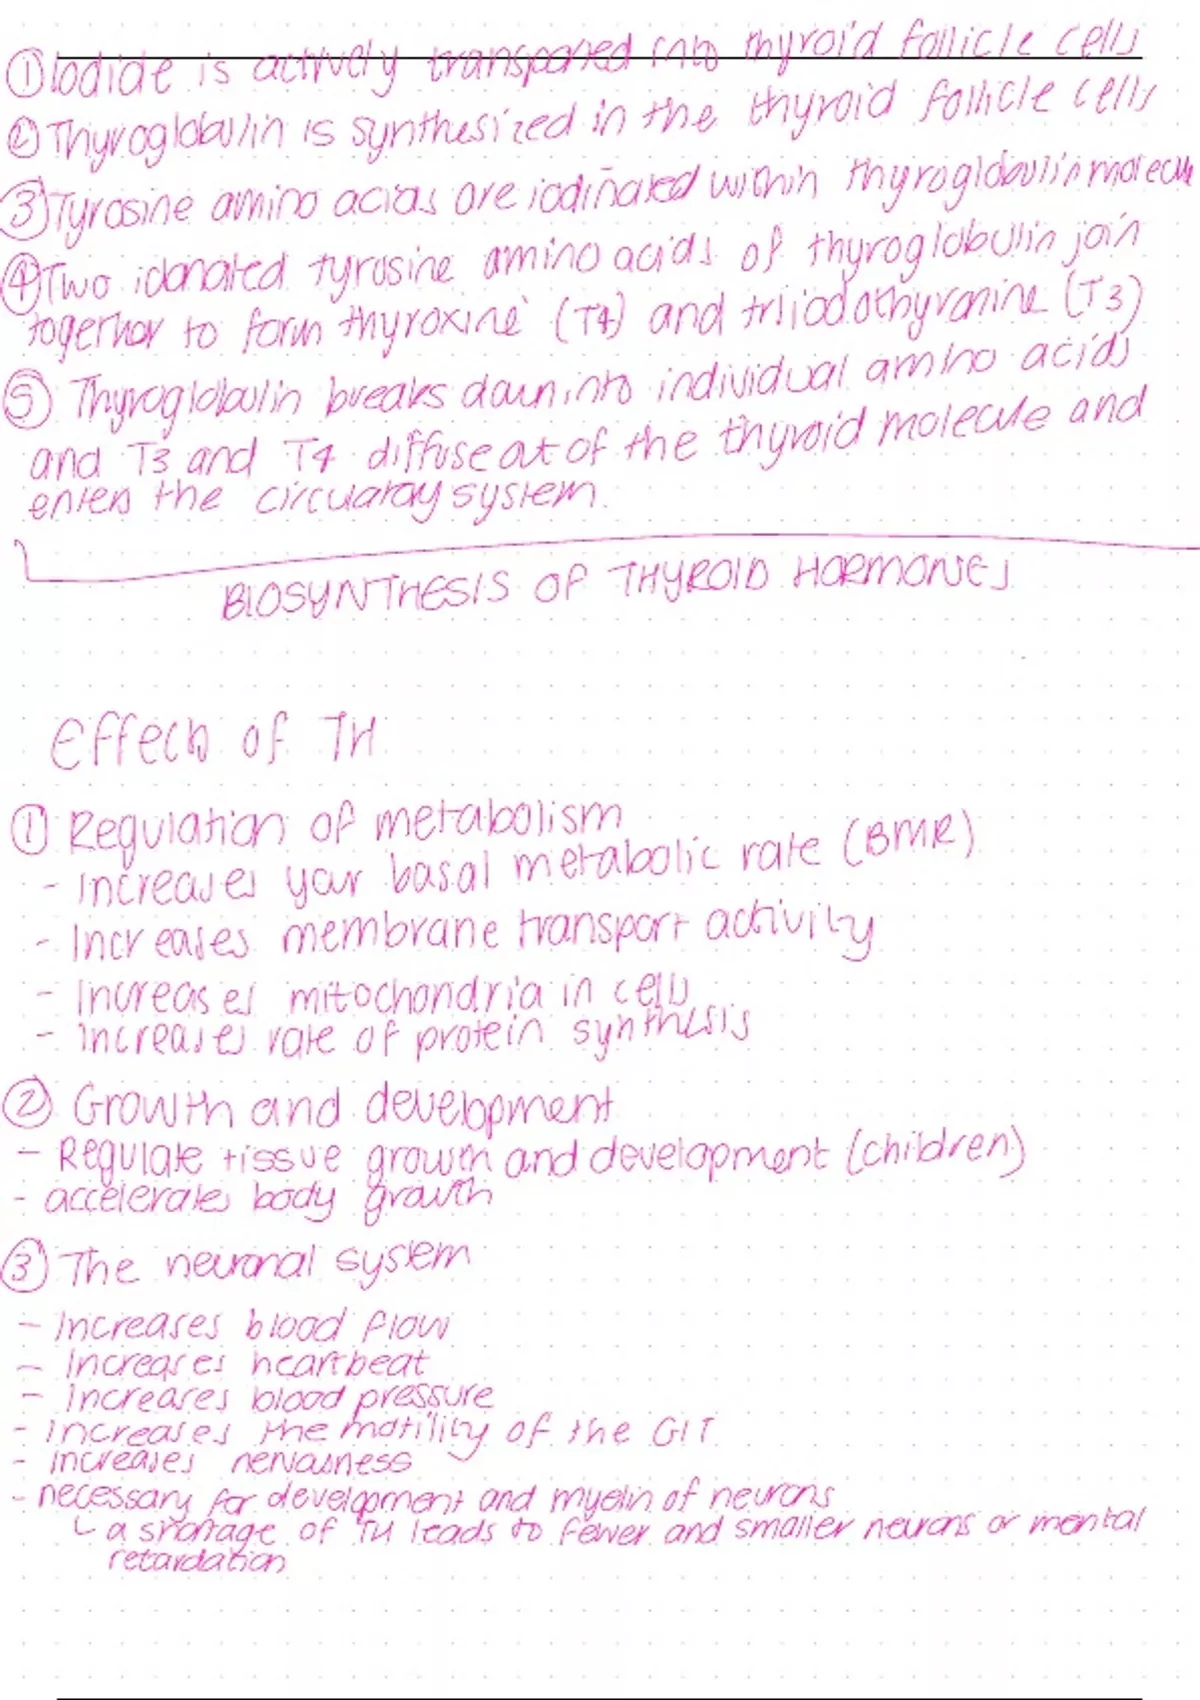 ① Iodide is actively transported into thyroid follicle cells
② Thyroglobulin is synthesized in the thyroid follicle cells
③ Tyrosine amino acids are iodinated within thyroglobulin molecule
④ Two idonated tyrosine amino acids of thyroglobulin join
together to form thyroxine (T4) and triiodothyronine (T3)
⑤ Thyroglobulin breaks down into individual amino acids
and T3 and T4 diffuse out of the thyroid molecule and
enters the circulatory system.
BIOSYNTHESIS OF THYROID HORMONES
Effects of TH
① Regulation of metabolism
- Increases your basal metabolic rate (BMR)
- Increases membrane transport activity
- Increases mitochondria in cells
- Increases rate of protein synthesis
② Growth and development
- Regulate tissue growth and development (children)
- accelerates body growth
③ The neuronal system
- Increases blood flow
- Increases heartbeat
- Increases blood pressure
- increases the motility of the GIT
- increases nervousness
- necessary for development and myelin of neurons
↳ a shortage of TH leads to fewer and smaller neurons or mental
retardation